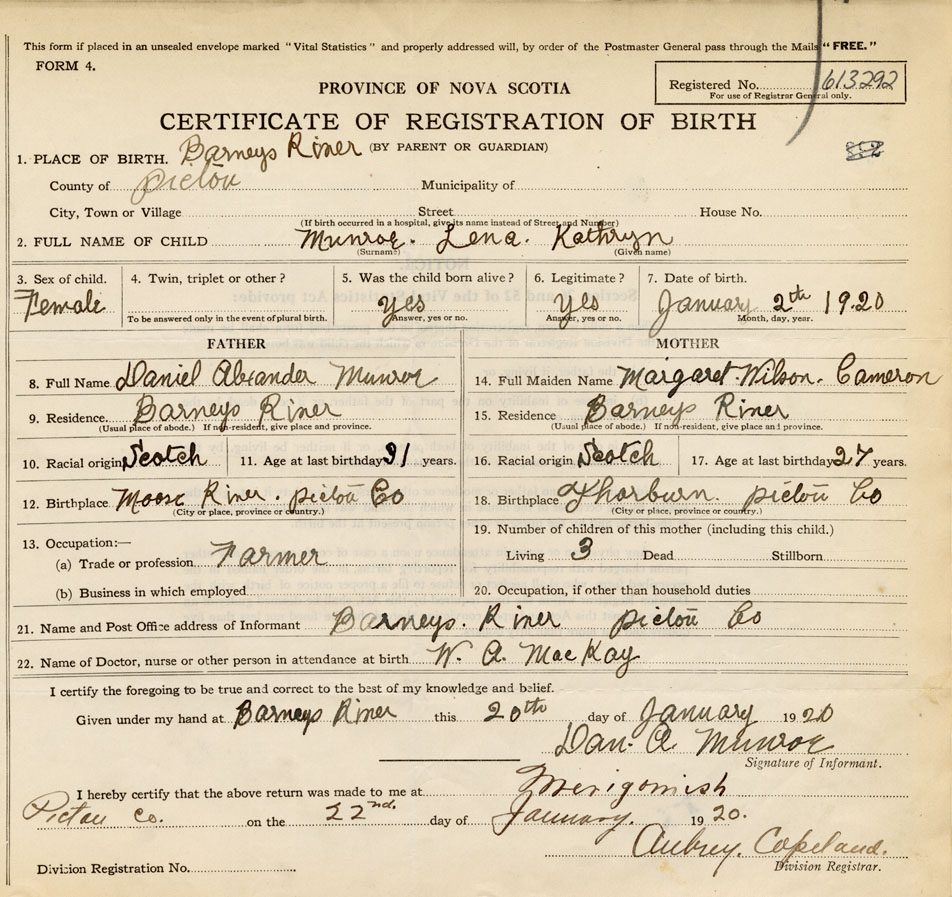 This form if placed in an unsealed envelope marked "Vital Statistics" and properly addressed will, by order of the Postmaster General pass through the Mails "FREE."
FORM 4.
PROVINCE OF NOVA SCOTIA
Registered No. 613292
For use of Registrar General only.
CERTIFICATE OF REGISTRATION OF BIRTH
(BY PARENT OR GUARDIAN)
1. PLACE OF BIRTH. Barneys River
County of Pictou Municipality of
City, Town or Village Street House No.
(If birth occurred in a hospital, give its name instead of Street and Number)
2. FULL NAME OF CHILD Munroe. Lena. Kathryn
(Surname) (Given name)
3. Sex of child. 4. Twin, triplet or other? 5. Was the child born alive? 6. Legitimate? 7. Date of birth.
Female Yes Yes January 2th 1920
To be answered only in the event of plural birth. Answer, yes or no. Answer, yes or no. Month, day, year.
FATHER MOTHER
8. Full Name Daniel Alexander Munroe 14. Full Maiden Name Margaret Wilson. Cameron
9. Residence. Barneys River 15. Residence Barneys River
(Usual place of abode.) If non-resident, give place and province. (Usual place of abode.) If non-resident, give place and province.
10. Racial origin Scotch 11. Age at last birthday 31 years. 16. Racial origin Scotch 17. Age at last birthday 27 years.
12. Birthplace Moose River. Pictou Co 18. Birthplace Thorburn. Pictou Co
(City or place, province or country.) (City or place, province or country.)
13. Occupation:— 19. Number of children of this mother (including this child.)
(a) Trade or profession Farmer Living 3 Dead Stillborn
(b) Business in which employed 20. Occupation, if other than household duties
21. Name and Post Office address of Informant Barneys. River Pictou Co
22. Name of Doctor, nurse or other person in attendance at birth W. A. MacKay
I certify the foregoing to be true and correct to the best of my knowledge and belief.
Given under my hand at Barneys River this 20th day of January 1920
Dan. A. Munroe
Signature of Informant.
I hereby certify that the above return was made to me at Merigomish
Pictou Co. on the 22nd. day of January. 1920.
Aubrey. Copeland.
Division Registration No. Division Registrar.